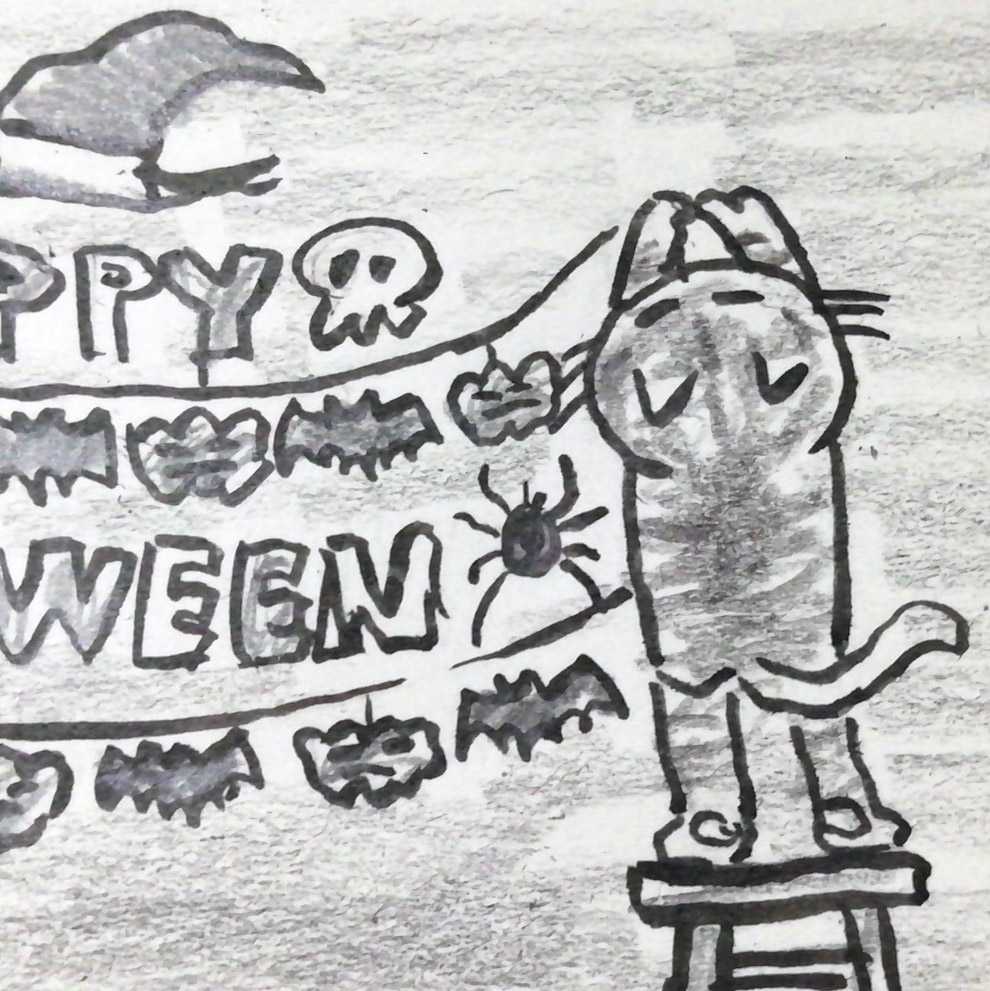 PPY
WEEN